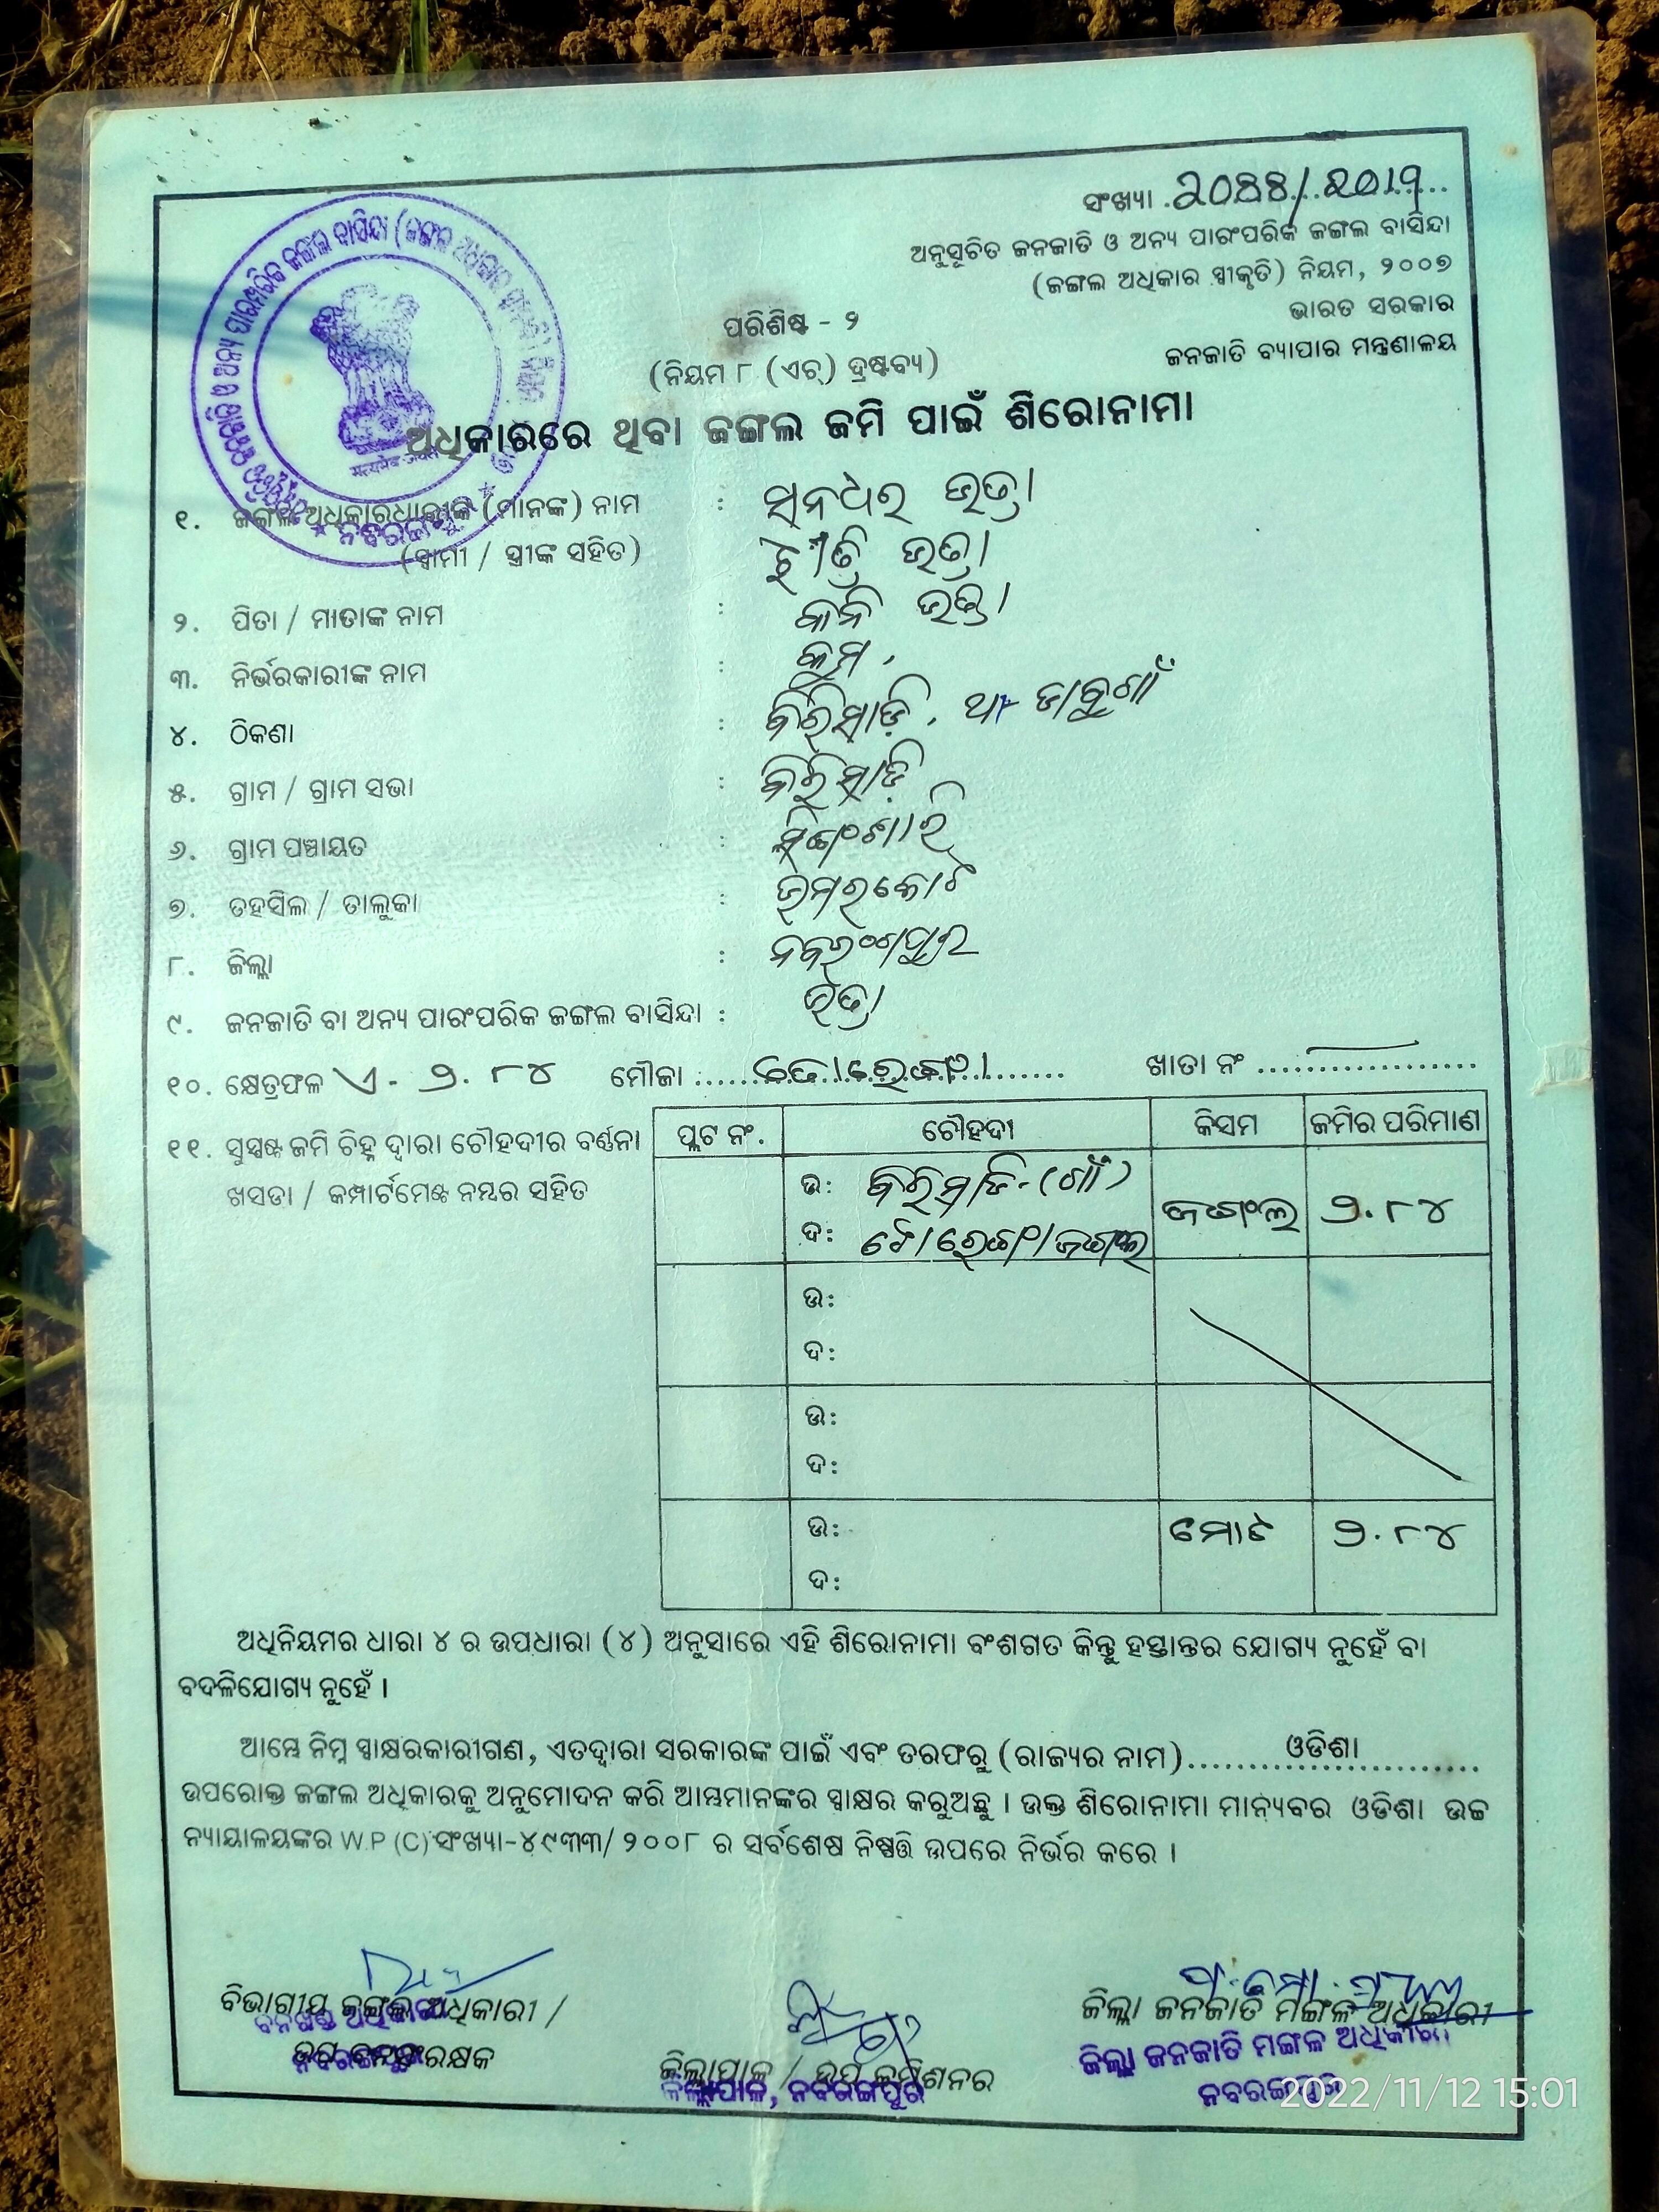 ସଂଖ୍ୟା
ଅନୁସୂଚିତ ଜନଜାତି ଓ ଅନ୍ୟ ପାରଂପରିକ ଜଙ୍ଗଲ ବାସିନ୍ଦା
(ଜଙ୍ଗଲ ଅଧିକାର ସ୍ୱୀକୃତି) ନିୟମ, ୨୦୦୭
ଭାରତ ସରକାର
ଜନଜାତି ବ୍ୟାପାର ମନ୍ତ୍ରଣାଳୟ
ପରିଶିଷ୍ଟ - ୨
(ନିୟମ ୮ (ଏଚ୍) ଦ୍ରଷ୍ଟବ୍ୟ)
ଅଧିକାରରେ ଥିବା ଜଙ୍ଗଲ ଜମି ପାଇଁ ଶିରୋନାମା
୧. ଜଙ୍ଗଲ ଅଧିକାରଧାରୀଙ୍କ (ମାନଙ୍କ) ନାମ : ସନଧର ଭତ୍ରା
(ସ୍ୱାମୀ / ସ୍ତ୍ରୀଙ୍କ ସହିତ) ଭତ୍ରା
୨. ପିତା / ମାତାଙ୍କ ନାମ : ଭତ୍ରା
୩. ନିର୍ଭରକାରୀଙ୍କ ନାମ :
୪. ଠିକଣା : ବିରିସାଡ଼ି. ଡାବୁଗାଁ
୫. ଗ୍ରାମ / ଗ୍ରାମ ସଭା : ବିରିସାଡ଼ି
୬. ଗ୍ରାମ ପଞ୍ଚାୟତ :
୭. ତହସିଲ / ତାଲୁକା : ଉମରକୋଟ
୮. ଜିଲ୍ଲା : ନବରଂଗପୁର
୯. ଜନଜାତି ବା ଅନ୍ୟ ପାରଂପରିକ ଜଙ୍ଗଲ ବାସିନ୍ଦା : ଭତ୍ରା
୧୦. କ୍ଷେତ୍ରଫଳ ଏ - ୨.୮୪ ମୌଜା ଖାତା ନଂ
୧୧. ସୁସ୍ପଷ୍ଟ ଜମି ଚିହ୍ନ ଦ୍ୱାରା ଚୌହଦୀର ବର୍ଣ୍ଣନା
ଖସଡା / କମ୍ପାର୍ଟମେଣ୍ଟ ନମ୍ୱର ସହିତ
ପ୍ଲଟ ନଂ. ଚୌହଦୀ କିସମ ଜମିର ପରିମାଣ
ଉ: ବିରିସାଡି (ଗାଁ) ଜଗଂଲ ୨.୮୪
ଦ:
ଉ:
ଦ:
ଉ:
ଦ:
ଉ: ମୋଟ ୨.୮୪
ଦ:
ଅଧିନିୟମର ଧାରା ୪ ର ଉପଧାରା (୪) ଅନୁସାରେ ଏହି ଶିରୋନାମା ବଂଶଗତ କିନ୍ତୁ ହସ୍ତାନ୍ତର ଯୋଗ୍ୟ ନୁହେଁ ବା
ବଦଳିଯୋଗ୍ୟ ନୁହେଁ ।
ଆମ୍ଭେ ନିମ୍ନ ସ୍ୱାକ୍ଷରକାରୀଗଣ, ଏତଦ୍ୱାରା ସରକାରଙ୍କ ପାଇଁ ଏବଂ ତରଫରୁ (ରାଜ୍ୟର ନାମ) ଓଡିଶା
ଉପରୋକ୍ତ ଜଙ୍ଗଲ ଅଧିକାରକୁ ଅନୁମୋଦନ କରି ଆମ୍ଭମାନଙ୍କର ସ୍ୱାକ୍ଷର କରୁଅଛୁ । ଉକ୍ତ ଶିରୋନାମା ମାନ୍ୟବର ଓଡିଶା ଉଚ୍ଚ
ନ୍ୟାୟାଳୟଙ୍କର W.P (C) ସଂଖ୍ୟା-୪୯୩୩/ ୨୦୦୮ ର ସର୍ବଶେଷ ନିଷ୍ପତ୍ତି ଉପରେ ନିର୍ଭର କରେ ।
ବିଭାଗୀୟ ଜଙ୍ଗଲ ଅଧିକାରୀ /
ଉପ ବନସଂରକ୍ଷକ
ଜିଲ୍ଲାପାଳ / ଉପ କମିଶନର
ଜିଲ୍ଲାପାଳ, ନବରଙ୍ଗପୁର
ଜିଲ୍ଲା ଜନଜାତି ମଙ୍ଗଳ ଅଧିକାରୀ
ଜିଲ୍ଲା ଜନଜାତି ମଙ୍ଗଳ ଅଧିକାରୀ
ନବରଙ୍ଗପୁର
2022/11/12 15:01